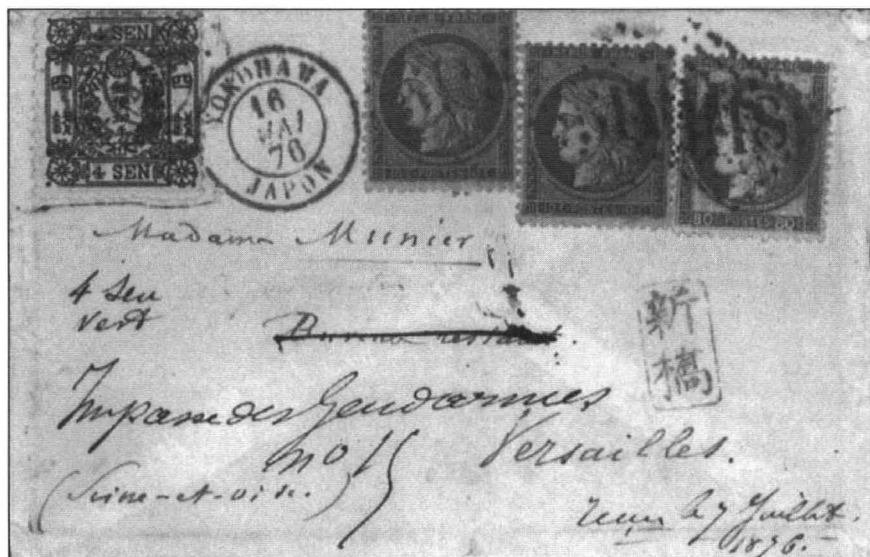 4 SEN
4 SEN
YOKOHAMA
16
MAI
76
JAPON
Madame Munier
4 Sen
vert
Bureau restant.
新橋
Impasse des Gendarmes
no 15
Versailles.
(Seine-et-oise.)
reçu le 7 Juillet
1876.